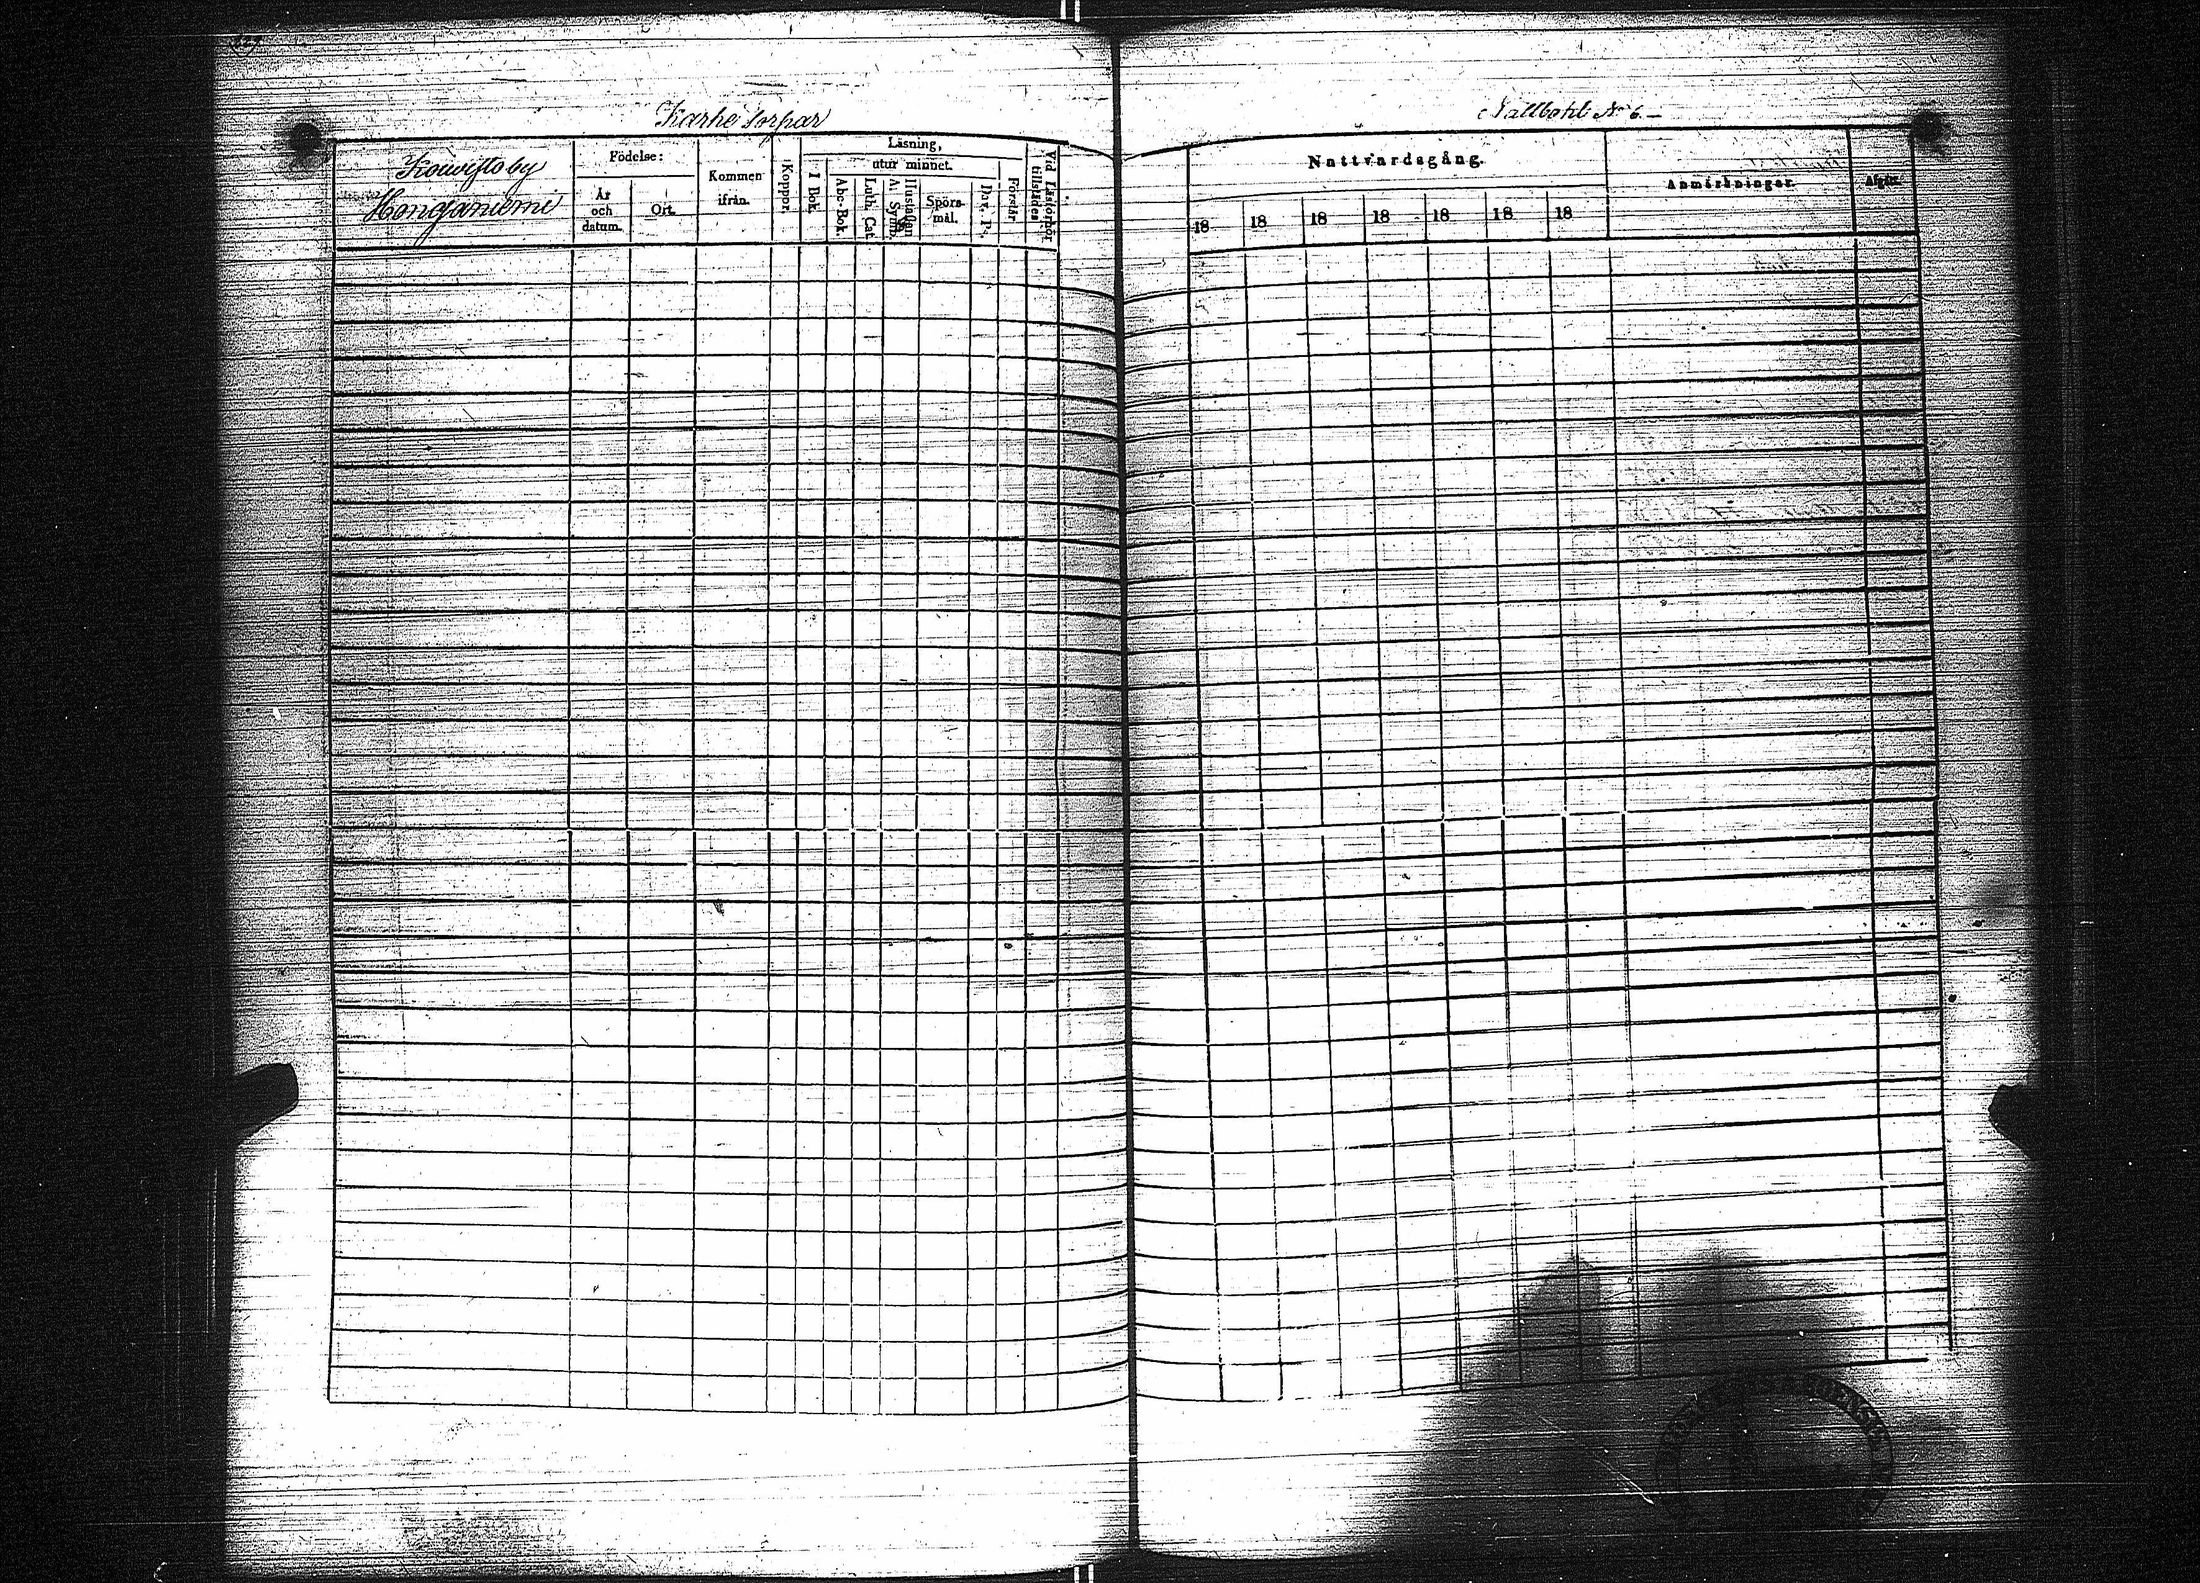 Karhe Torpar
Koivisto by
Honganiemi
Födelse:
År
och
datum.
Ort.
Kommen
ifrån.
Koppor.
Läsning,
utur minnet.
I Bok.
Abc-Bok.
Luth. Cat.
Hustaflan
A. Symb.
Spörs-
mål.
Dav. Ps.
Förstår.
Vid Läsförhör
tillstädes.
N:o 6.
Nattvardsgång.
18 18 18 18 18 18 18
Anmärkningar.
Afgått.